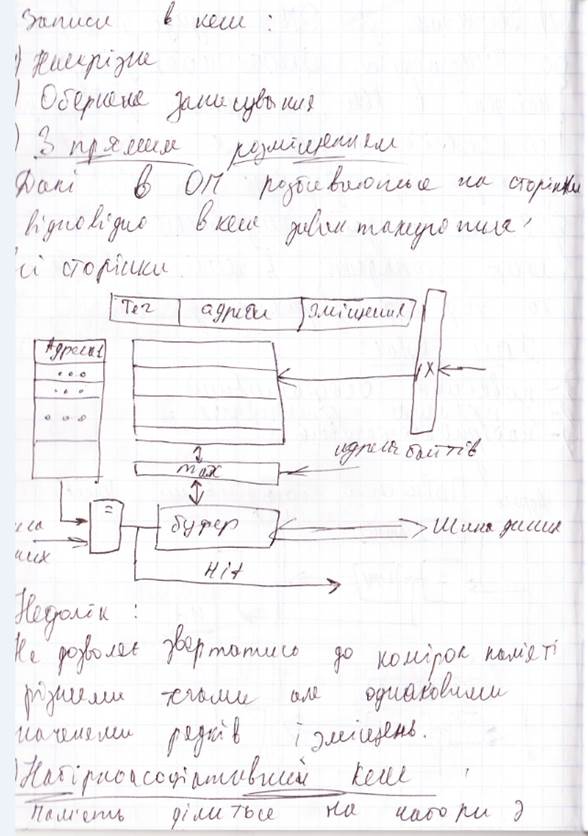 Записи в кеш :
) Наскрізне
) Обернене записування
) З прямим розміщенням
Дані в ОП розбиваються на сторінки
відповідно в кеш
сі сторінки
Тег адреси зміщення
Адреса
X
адреса байтів
max
=
буфер
Шина даних
них
Hit
Недолік :
Не дозволяє звертатись до комірок памяті
різними тегами але однаковими
наченеми рядків і зміщень.
) Набірноасоціативний кеш
Память ділиться на набори з